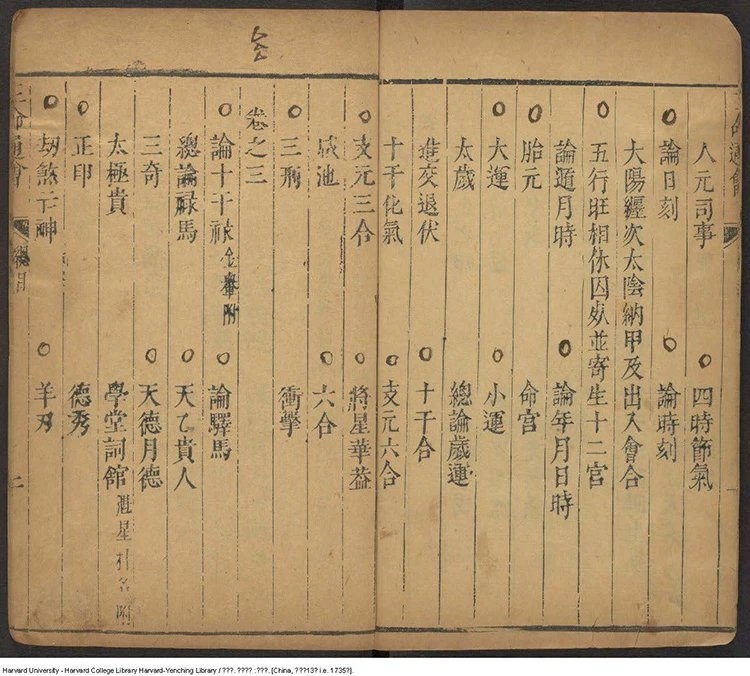 三命通會
人元司事　四時節氣
論日刻　論時刻
大陽纒次太陰納甲及出入會合
五行旺相休囚死並寄生十二宮
論遁月時　論年月日時
胎元　命宮
大運　小運
太歲　總論歲運
進交退伏　十干合
十干化氣　支元六合
支元三合　將星華蓋
咸池　六合
三刑　衝擊
卷之三
論十干祿金輿附　論驛馬
總論祿馬　天乙貴人
三奇　天德月德
太極貴　學堂詞館魁星科名附
正印　德秀
劫煞亡神　羊刃
三命通會　總目　二
Harvard University - Harvard College Library Harvard-Yenching Library / ???. ???? :???. [China, ???13? i.e. 1735?].